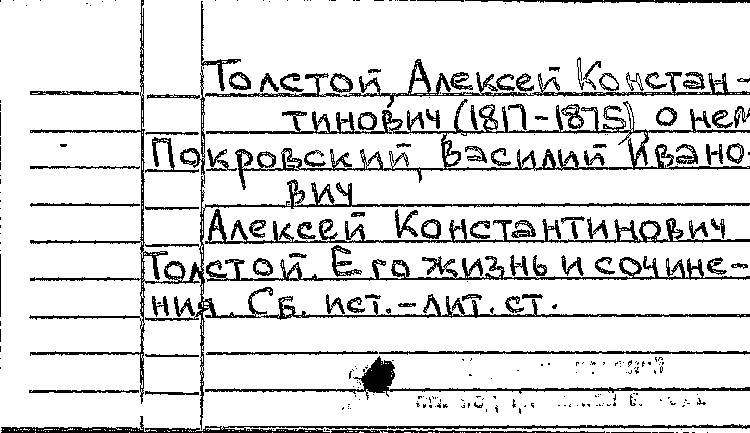 Толстой, Алексей Констан-
тинович (1817-1875), о нем
Покровский, Василий Ивано-
вич
Алексей Константинович
Толстой. Его жизнь и сочине-
ния. Сб. ист.-лит. ст.